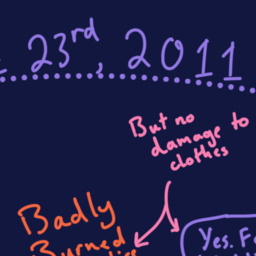 23rd, 2011
But no
damage to
clothes
Badly
Burned
Yes.